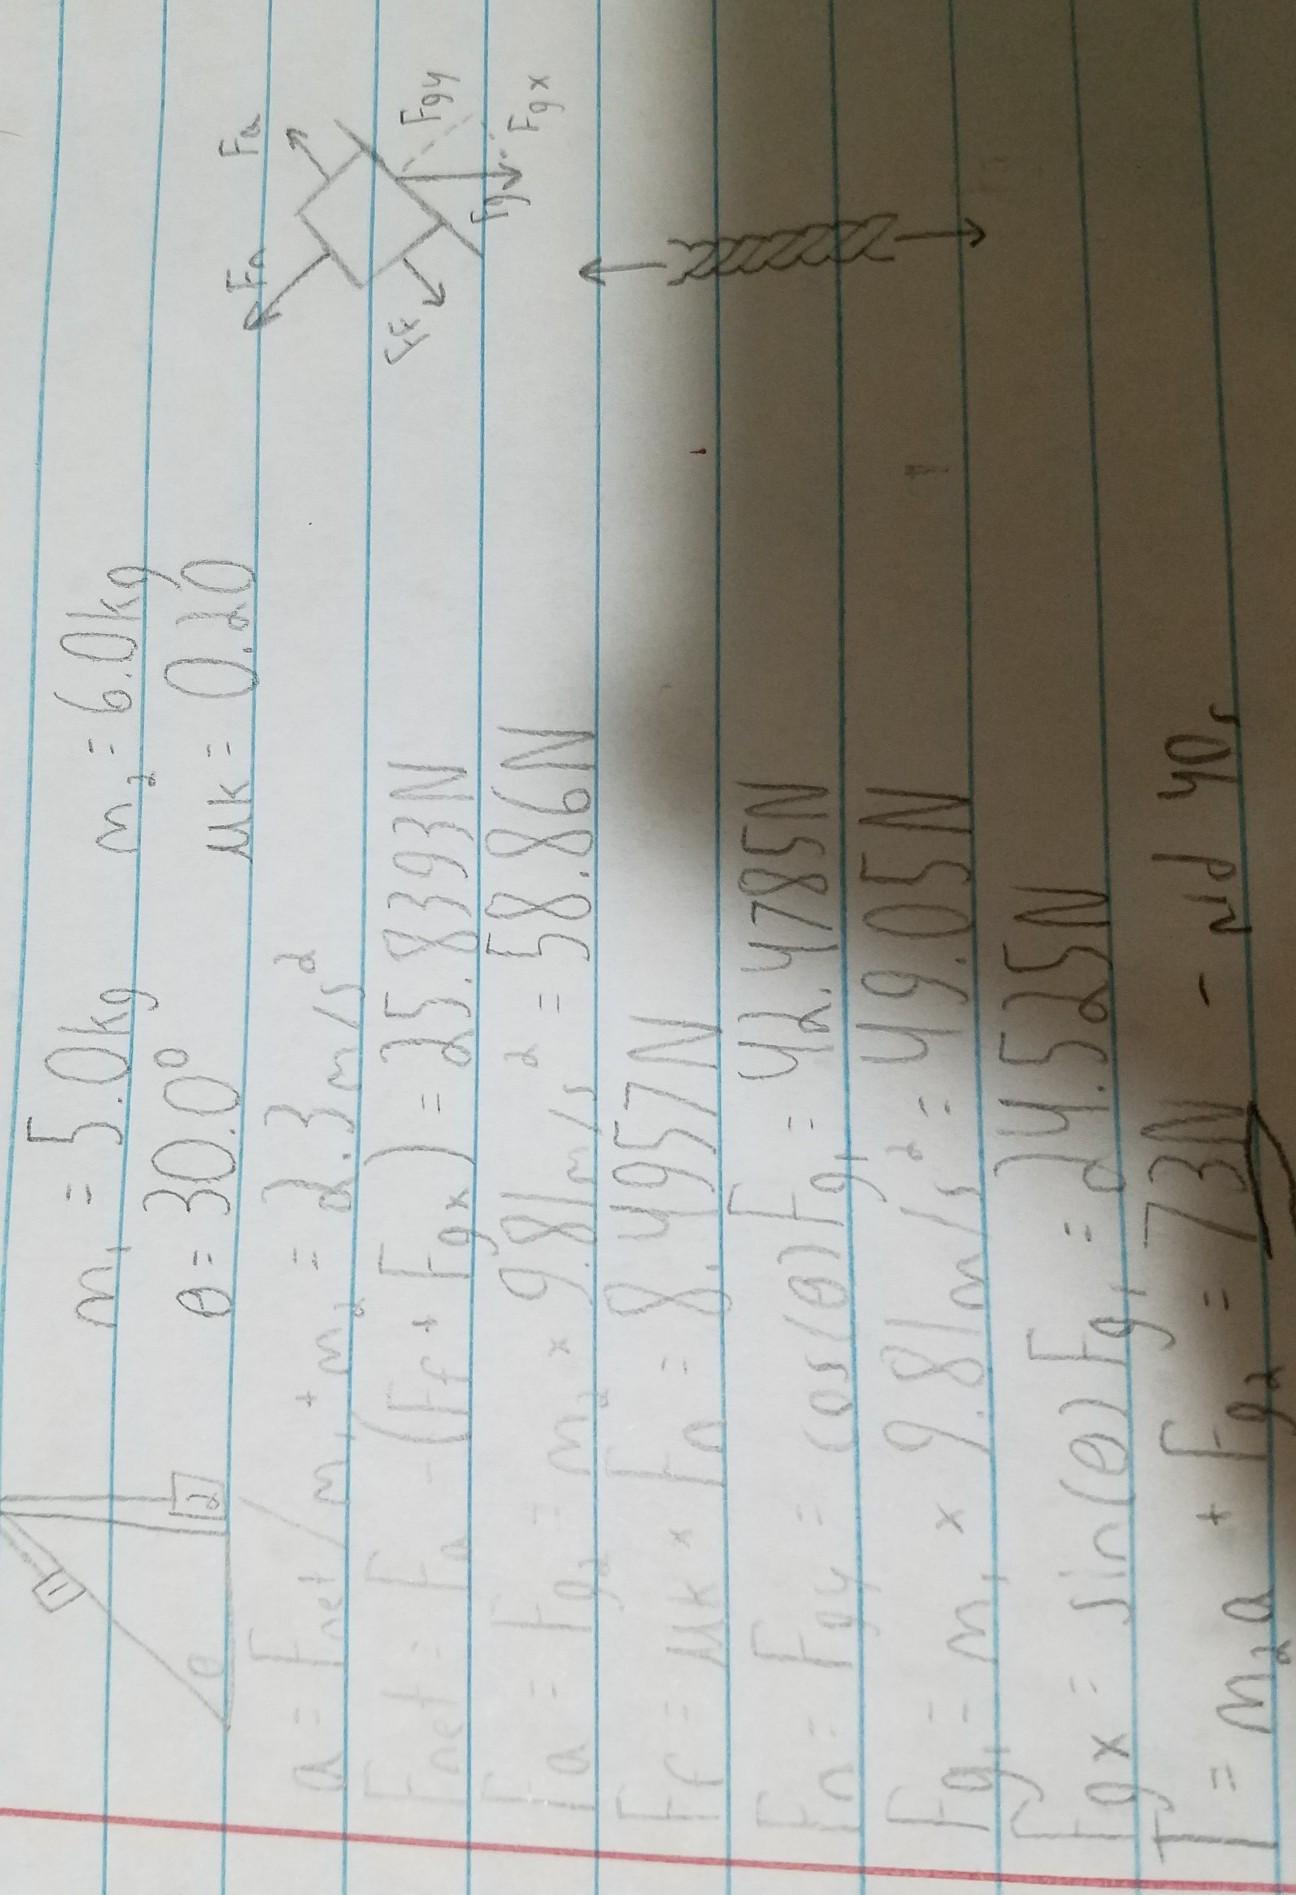 m₁ = 5.0kg m₂ = 6.0kg
θ = 30.0° μk = 0.20
1
2
θ
a = Fnet/m₁+m₂ = 2.3m/s²
Fnet = Fa - (Ff + Fgx) = 25.8393N
Fa = Fg₂ = m₂ × 9.81m/s² = 58.86N
Ff = μk × Fn = 8.4957N
Fn = Fgy = cos(θ)Fg₁ = 42.4785N
Fg₁ = m₁ × 9.81m/s² = 49.05N
Fgx = sin(θ)Fg₁ = 24.525N
T = m₂a + Fg₂ = 73N -
Fn
Fa
Ff
Fgy
Fg
Fgx